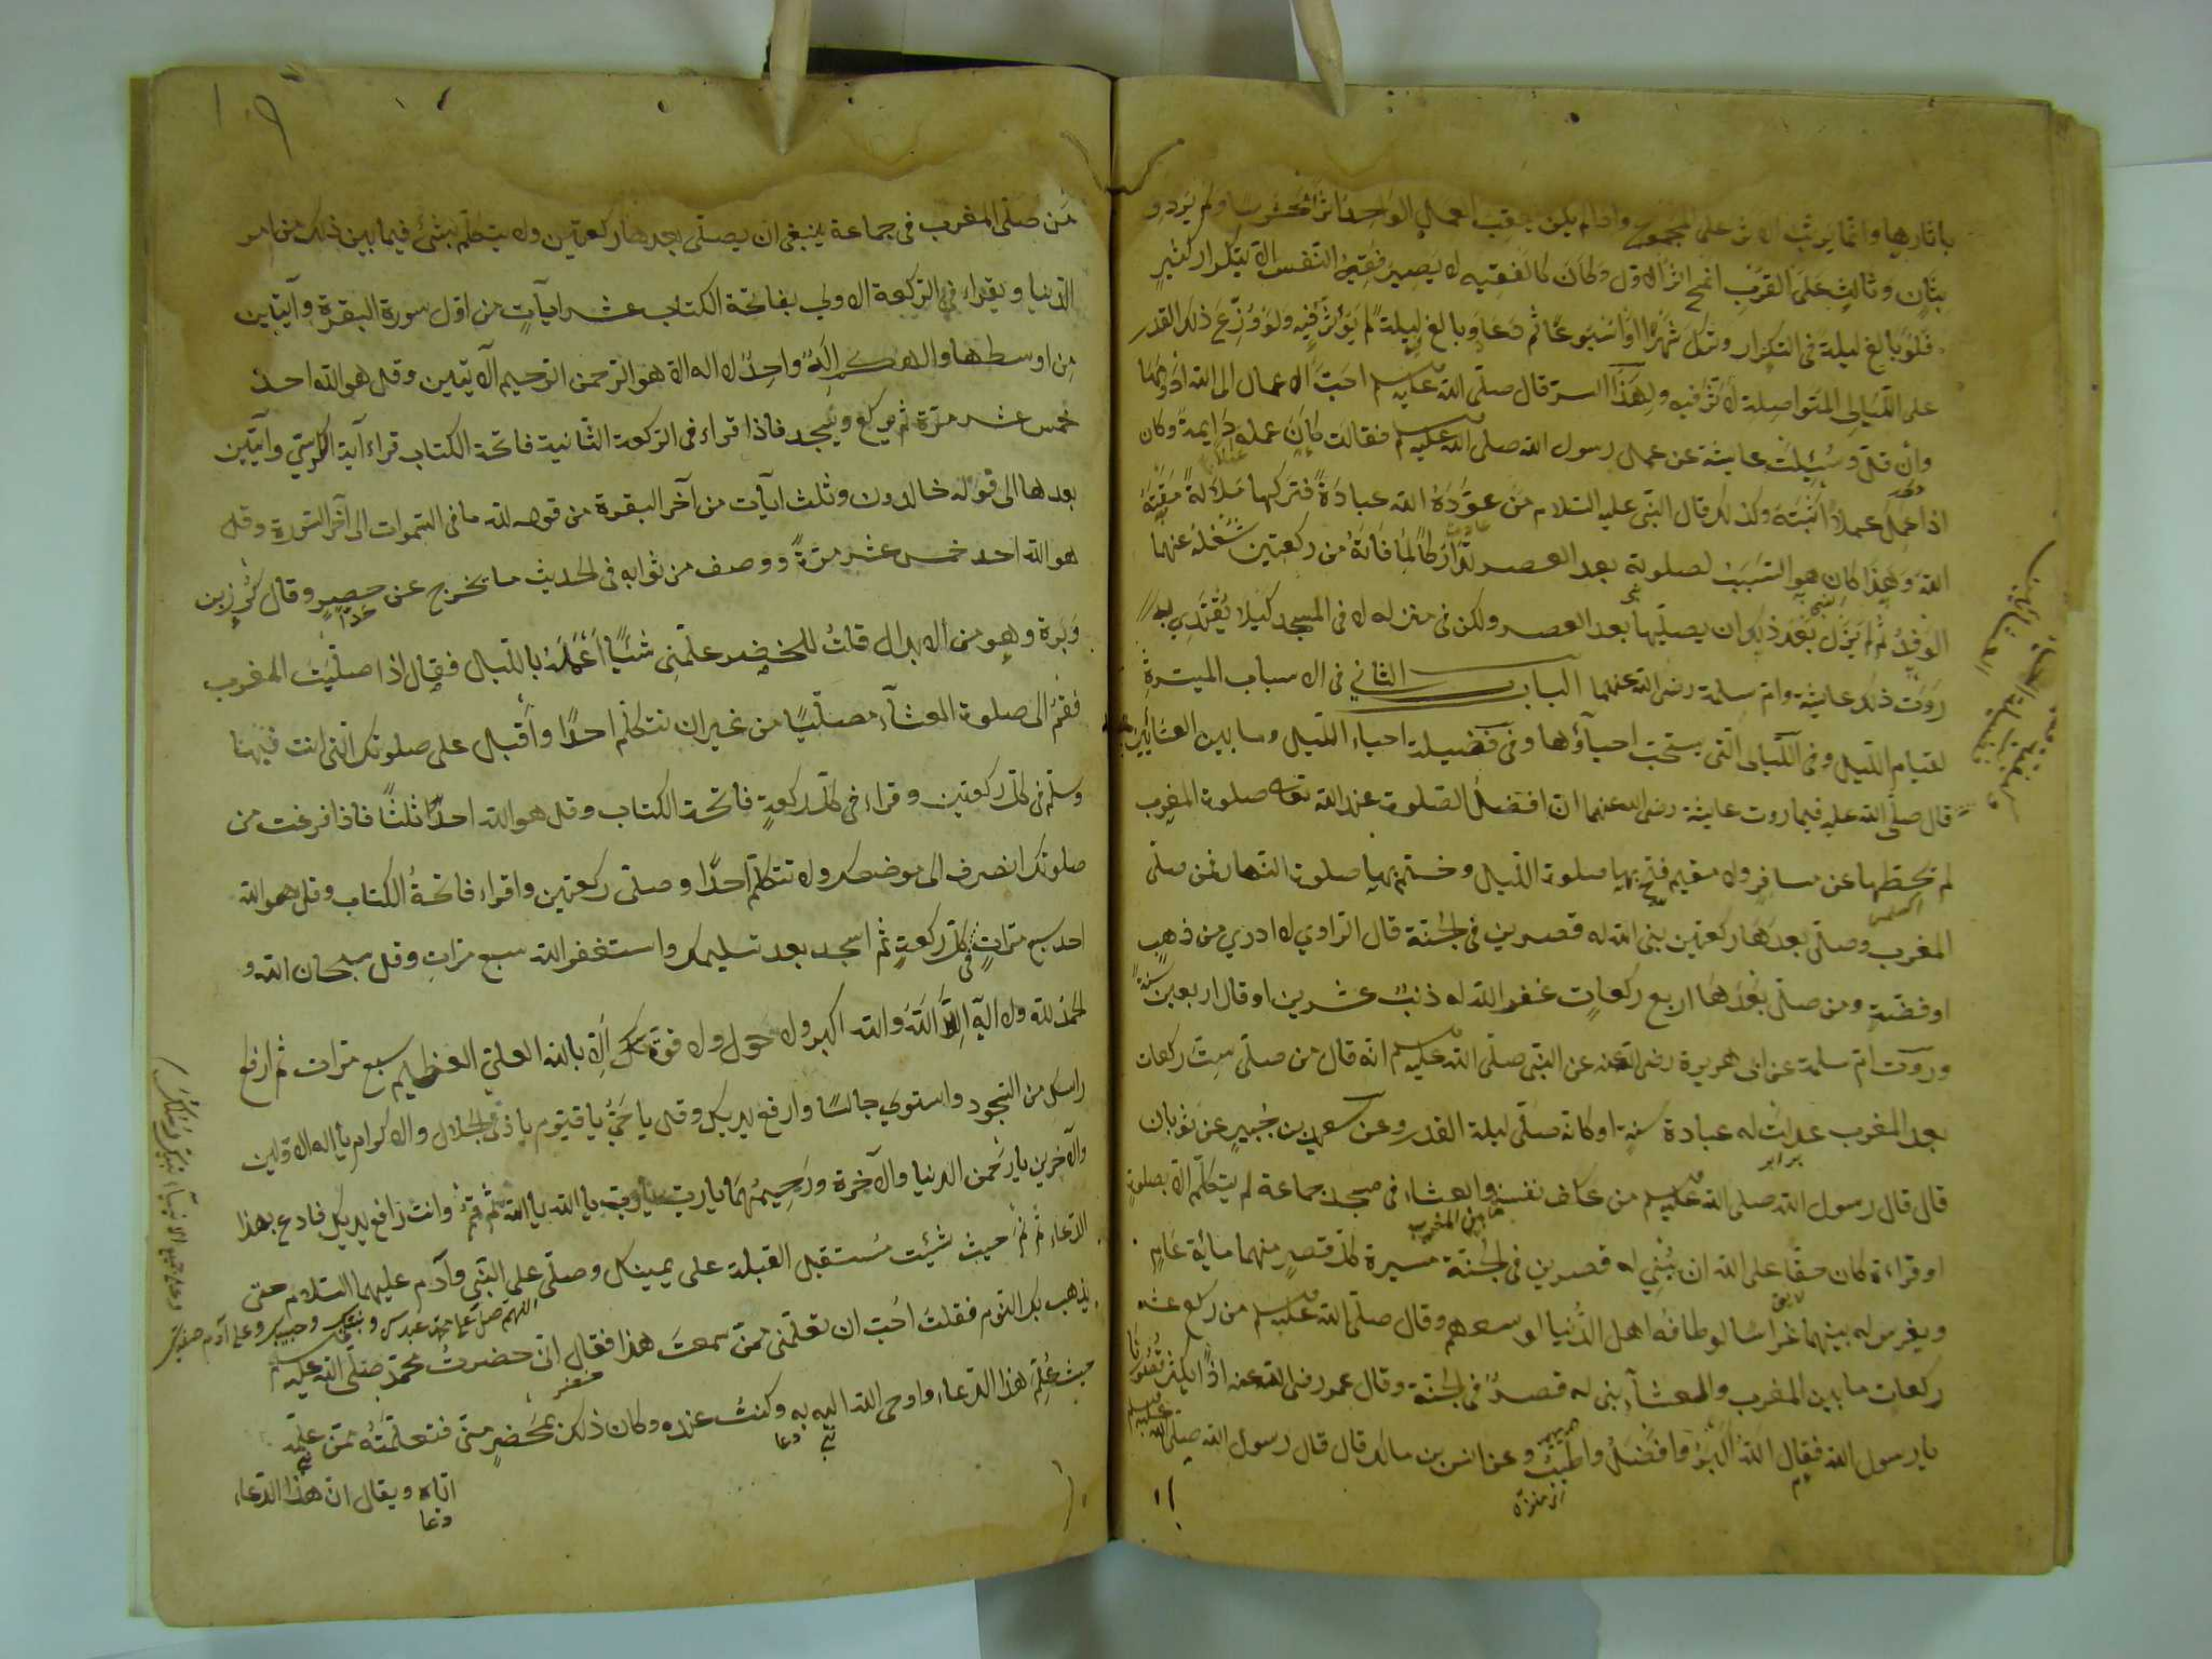 باثارها وانما يترتب الاثر على المجموع واذا لم يكن يعقب العمل الواحد اثرا محسوسا ولم يردف
بثان وثالث على القرب انمحى اثر الاول وكان كالفقيه لا يصير فقيه النفس الا بتكرار كثير
فلو بالغ ليلة في التكرار وترك شهرا او اسبوعا ثم دعا وبالغ ليلة لم يؤثر فيه ولو وزع ذلك القدر
على الليالى المتواصلة لاثر فيه ولهذا السر قال صلى الله عليه وسلم احب الاعمال الى الله ادومها
وان قل وسئلت عايشة عن عمل رسول الله صلى الله عليه وسلم فقالت كان عمله دايمة وكان
اذا عمل عملا اثبته وكذلك قال النبى عليه السلام من عوده الله عبادة فتركها ملالة مقته
الله وهذا كان هو السبب لصلوته بعد العصر تداركا لما فاته من ركعتين شغله عنهما
الوفد ثم لم يزل بعد ذلك ان يصليها بعد العصر ولكن فى منزله لا فى المسجد كيلا يقتدي به
روت ذلك عايشة وام سلمة رضى الله عنهما الباب الثاني فى الاسباب الميسرة
لقيام الليل وفى الليالى التى يستحب احياؤها وفى فضيلة احياء الليل وما بين العشائين
قال صلى الله عليه فيما روت عايشة رضى الله عنها ان افضل الصلوة عند الله تعالى صلوة المغرب
لم يحطها عن مسافر ولا مقيم فتح بها صلوة الليل وختم بها صلوة النهار فمن صلى
المغرب وصلى بعدها ركعتين بنى الله له قصرين فى الجنة قال الراوي لا ادري من ذهب
او فضة ومن صلى بعدها اربع ركعات غفر الله له ذنب عشرين او قال اربعين سنة
وروت ام سلمة عن ابى هريرة رضى الله عنه عن النبى صلى الله عليه وسلم انه قال من صلى ست ركعات
بعد المغرب عدلت له عبادة سنة او كانه صلى ليلة القدر وعن سعيد بن جبير عن ثوبان
برابر
قال قال رسول الله صلى الله عليه وسلم من عكف نفسه ما بين المغرب والعشاء فى مسجد جماعة لم يتكلم الا بصلوة
او قراءة كان حقا على الله ان يبني له قصرين فى الجنة مسيرة كل قصر منهما مائة عام
ويغرس له بينهما غراسا لو طافه اهل الدنيا لوسعهم وقال صلى الله عليه وسلم من ركع عشر
ركعات ما بين المغرب والعشاء بنى له قصر فى الجنة وقال عمر رضى الله عنه اذا يكثر قصورنا
يا رسول الله فقال الله اكبر وافضل واطيب وعن انس بن مالك قال قال رسول الله صلى الله عليه وسلم
من صلى المغرب فى جماعة ينبغى ان يصلى بعدها ركعتين ولا يتكلم بشئ فيما بين ذلك من امر
الدنيا ويقراء فى الركعة الاولى بفاتحة الكتاب عشر ايآت من اول سورة البقرة وآيتين
من اوسطها والهكم اله واحد لا اله الا هو الرحمن الرحيم الآيتين وقل هو الله احد
خمس عشر مرة ثم يركع ويسجد فاذا قراء فى الركعة الثانية فاتحة الكتاب قراء آية الكرسي وآيتين
بعدها الى قوله خالدون وثلث ايآت من آخر البقرة من قوله لله ما فى السموات الى آخر السورة وقل
هو الله احد خمس عشر مرة ووصف من ثوابه فى الحديث ما يخرج عن حصر وقال كرز بن
وبرة وهو من الابدال قلت للخضر علمنى شيئا اعمله بالليل فقال اذا صليت المغرب
فقم الى صلوة العشاء مصليا من غير ان تتكلم احدا واقبل على صلوتك التى انت فيها
وسلم فى كل ركعتين وقراء فى كل ركعة فاتحة الكتاب وقل هو الله احد ثلثا فاذا فرغت من
صلوتك انصرف الى موضعك ولا تتكلم احدا وصلى ركعتين واقراء فاتحة الكتاب وقل هو الله
احد سبع مرات فى كل ركعة ثم اسجد بعد تسليمك واستغفر الله سبع مرات وقل سبحان الله و
الحمد لله ولا اله الا الله والله اكبر ولا حول ولا قوة الا بالله العلى العظيم سبع مرات ثم ارفع
راسك من السجود واستوي جالسا وارفع يديك وقل يا حي يا قيوم يا ذى الجلال والاكرام يا اله الاولين
والآخرين يا رحمن الدنيا والآخرة ورحيمهما يا رب يا رب يا الله يا الله ثم قم وانت رافع يديك فادع بهذا
الدعاء ثم نم حيث شئت مستقبل القبلة على يمينك وصلى على النبى وآدم عليهما السلام حتى
اللهم صل على محمد عبدك ونبيك وحبيبك وعلى آدم صفيك
وعلى جميع الانبياء
يذهب بك النوم فقلت احب ان تعلمنى ممن سمعت هذا فقال انى حضرت محمدا صلى الله عليه وسلم
حيث علم هذا الدعاء واوحى الله اليه به وكنت عنده وكان ذلك بمحضر منى فتعلمته ممن علمه
دعا
اياه ويقال ان هذا الدعاء
دعا